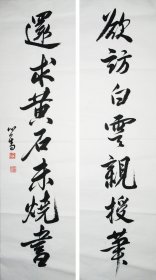 欲訪白雲親授筆
還求黃石未燒書
心畬